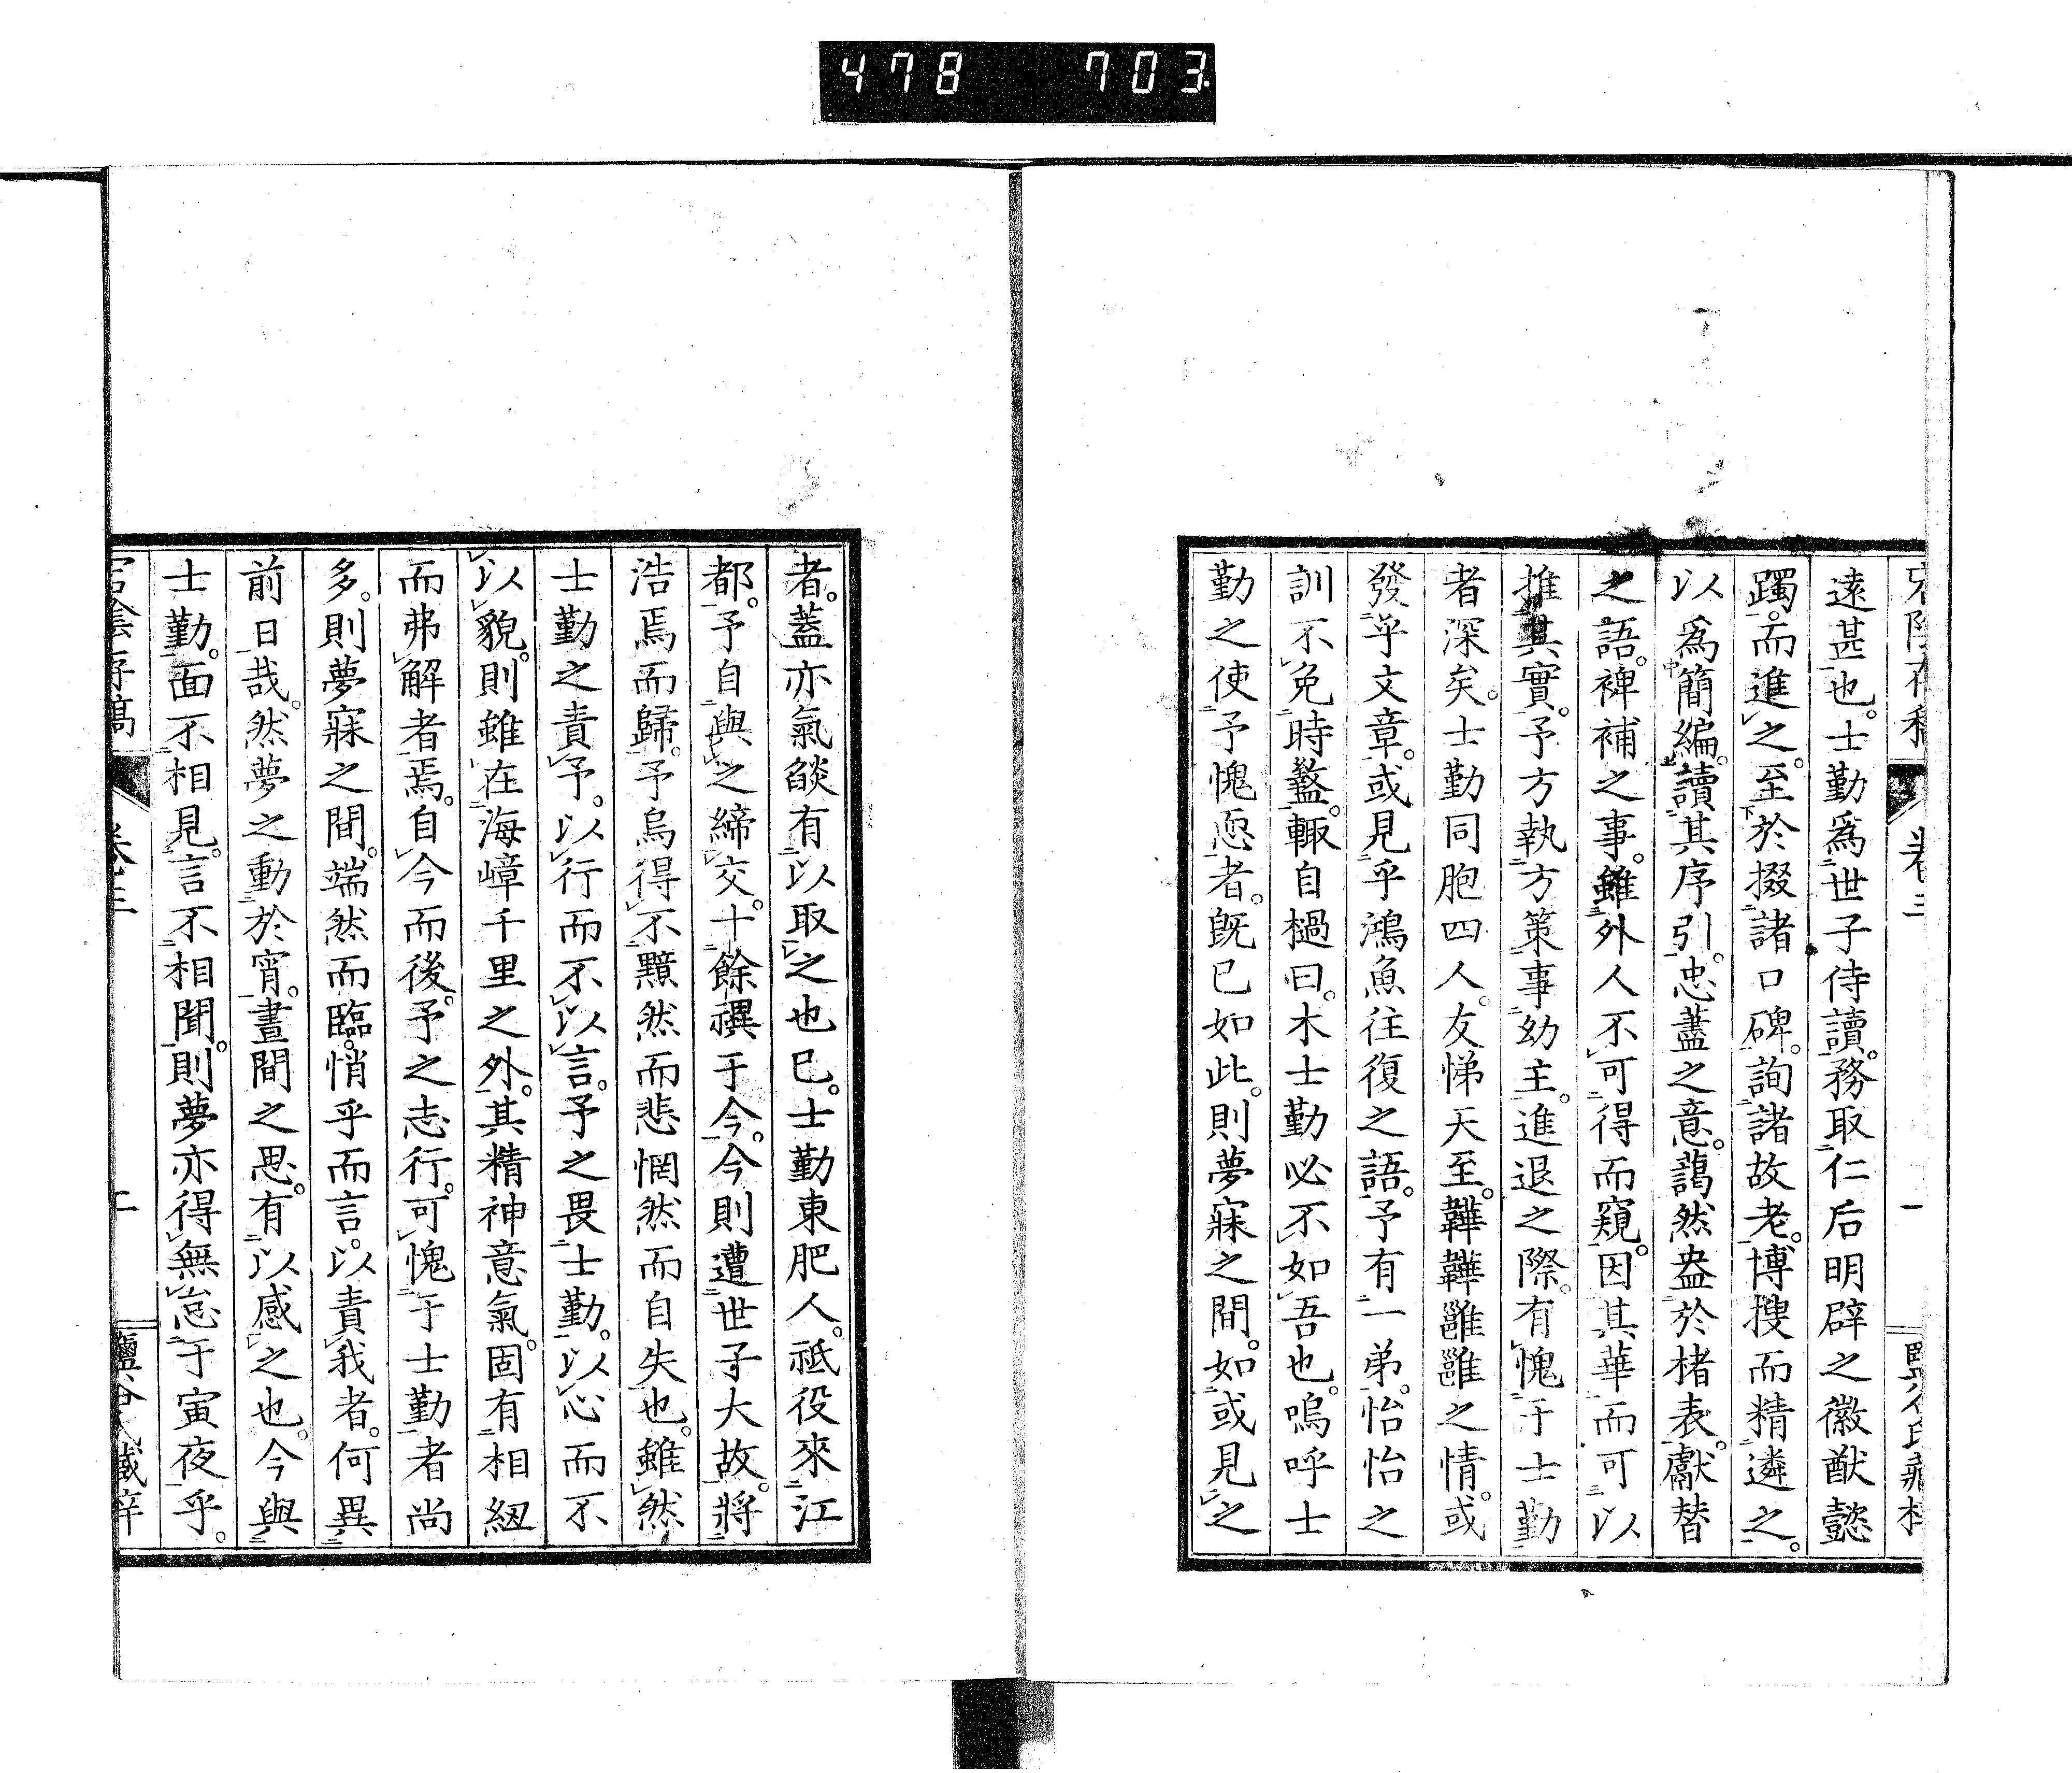 478 703
遠甚也。士勤爲世子侍讀。務取仁后明辟之徽猷懿
躅。而進之。至於掇諸口碑。詢諸故老。博搜而精遴之。
以爲簡編。讀其序引。忠藎之意。藹然盎於楮表。獻替
之語。裨補之事。雖外人不可得而窺。因其華而可以
推其實。予方執方策事幼主。進退之際。有愧于士勤
者深矣。士勤同胞四人。友悌天至。韡韡雝雝之情。或
發乎文章。或見乎鴻魚往復之語。予有一弟。怡怡之
訓不免時盭。輙自檛曰。木士勤必不如吾也。嗚呼士
勤之使予愧恧者。旣已如此。則夢寐之間。如或見之
者。蓋亦氣燄有以取之也已。士勤東肥人。祗役來江
都。予自與之締交。十餘禩于今。今則遭世子大故。將
浩焉而歸。予烏得不黯然而悲惘然而自失也。雖然
士勤之責予。以行而不以言。予之畏士勤。以心而不
以貌。則雖在海嶂千里之外。其精神意氣。固有相紐
而弗解者焉。自今而後。予之志行。可愧于士勤者尚
多。則夢寐之間。端然而臨。悄乎而言。以責我者。何異
前日哉。然夢之動於宵。晝間之思。有以感之也。今與
士勤。面不相見。言不相聞。則夢亦得無怠于寅夜乎。